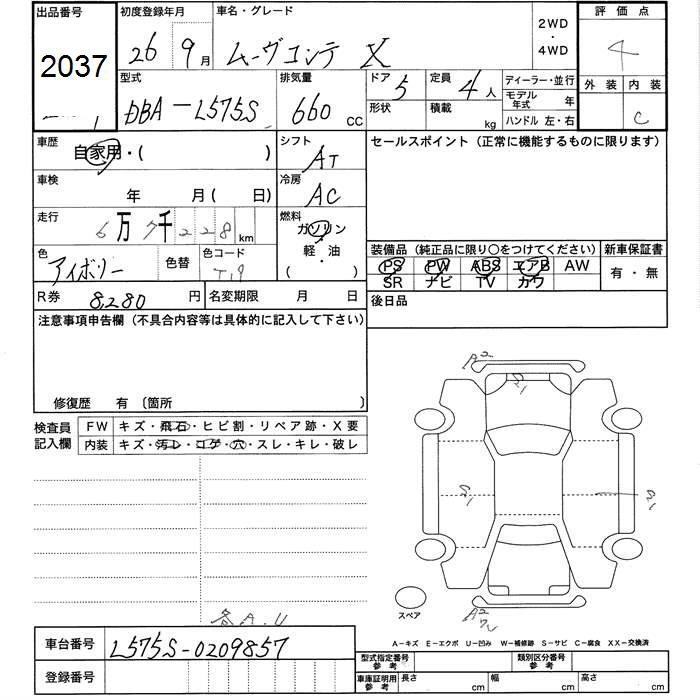 出品番号 初度登録年月 車名・グレード 2WD・4WD 評価点
2037 26年9月 ムーヴコンテ X 4
型式 排気量 ドア 定員 ディーラー・並行 外装 内装
DBA-L575S 660 CC 5 4人 モデル年式 年 C
形状 積載 kg ハンドル 左・右
車歴 自家用・( ) シフト AT セールスポイント（正常に機能するものに限ります）
車検 年 月( 日) 冷房 AC
走行 6万7千228km 燃料 ガソリン
軽・油
( )
色 アイボリー 色替 色コード T19
装備品（純正品に限り○をつけてください） 新車保証書
PS PW ABS エアB AW 有・無
SR ナビ TV カワ
R券 8280円 名変期限 月 日 後日品
注意事項申告欄（不具合内容等は具体的に記入して下さい）
修復歴 有 〔箇所 〕
検査員記入欄 FW キズ・飛石・ヒビ割・リペア跡・X要
内装 キズ・汚レ・コゲ・穴・スレ・キレ・破レ
A2
各A.U
スペア
車台番号 L575S-0209857
登録番号
A-キズ E-エクボ U-凹み W-補修跡 S-サビ C-腐食 XX-交換済
型式指定番号 参考 類別区分番号 参考
車庫証明用 参考 長さ cm 幅 cm 高さ cm